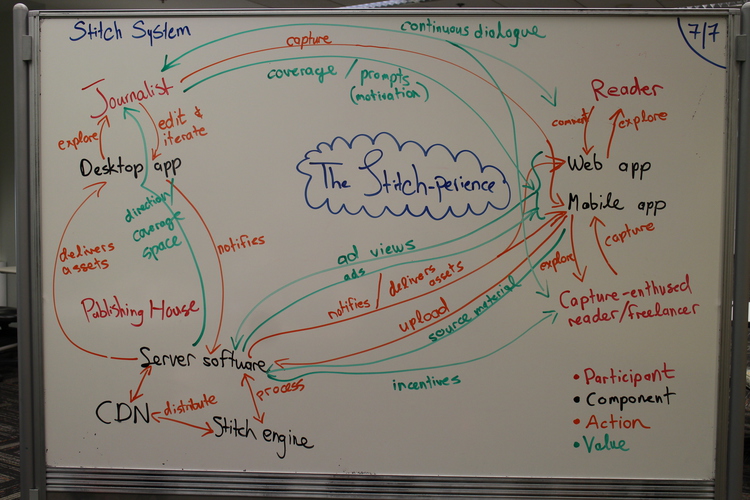 Stitch System
continuous dialogue
7/7
capture
coverage / prompts
(motivation)
Journalist
Reader
explore
edit &
iterate
comment
explore
Desktop app
The Stitch-perience
Web app
Mobile app
direction/
coverage
space
delivers
assets
notifies
ad views
ads
notifies / delivers assets
explore
capture
Publishing House
upload
source material
Capture-enthused
reader/freelancer
Server software
process
incentives
CDN
distribute
Stitch engine
• Participant
• Component
• Action
• Value